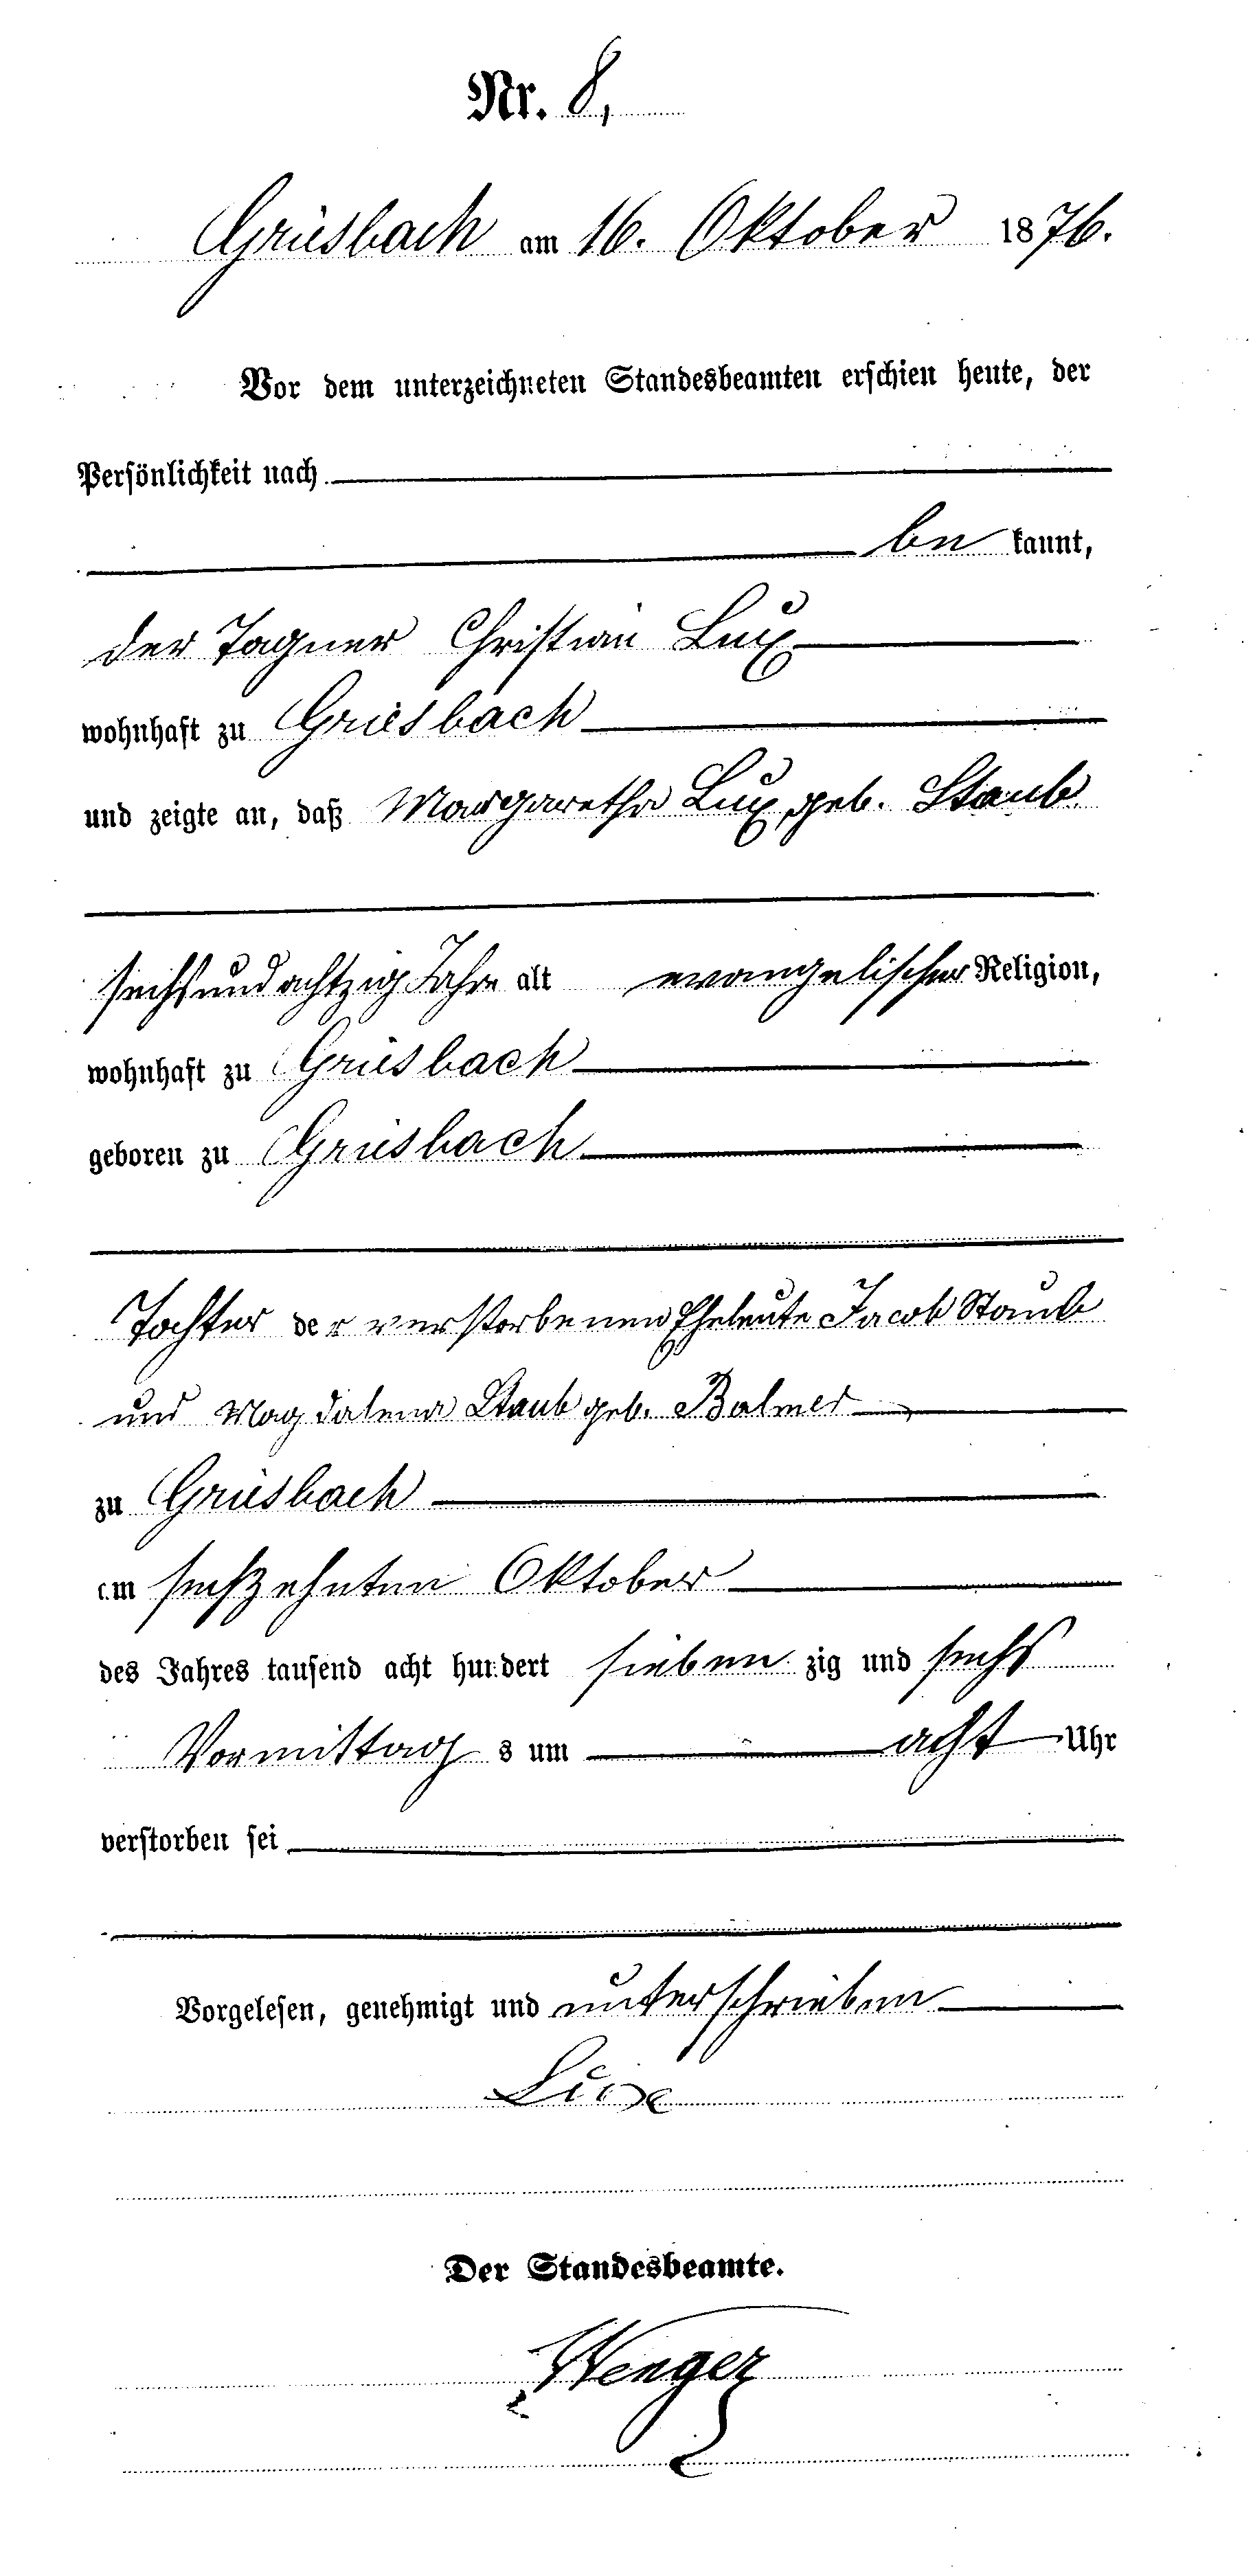 Nr. 8,
Griesbach am 16. Oktober 1876.
Vor dem unterzeichneten Standesbeamten erschien heute, der
Persönlichkeit nach
be kannt,
der Tagner Christian Lux
wohnhaft zu Griesbach
und zeigte an, daß Margaretha Lux, geb. Staub
sechsundachtzig Jahre alt evangelischer Religion,
wohnhaft zu Griesbach
geboren zu Griesbach
Tochter der verstorbenen Eheleute Jacob Staub
und Magdalena Staub geb. Balmer
zu Griesbach
am sechzehnten Oktober
des Jahres tausend acht hundert sieben zig und sechs
Vormittag s um acht Uhr
verstorben sei
Vorgelesen, genehmigt und unterschrieben
Lux
Der Standesbeamte.
Wenger